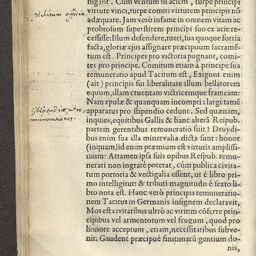 pugnant. Cum ventum in aciem, turpe principi
virtute vinci, turpe comiti virtutem principis nõ
adæquare. Jam verò infame in omnem vitam ac
probrosum superstitem principi suo ex acie re-
cessisse: Illum defendere, tueri, sua quoque fortia
facta, gloriæ ejus assignare præcipuum sacramẽ-
tum est. Principes pro victoria pugnant, comi-
tes pro principe. Comitum etiam à principe sua
remuneratio apud Tacitum est, Exigunt enim
(ait) principis sui liberalitate illum bellatorem
equum, illam cruentam victricemque frameam:
Nam epulæ & quanquam incompti: largi tamẽ
apparatus pro stipendio cedunt. Sed quænam,
inques, equitibus Gallis & hanc alterã Reipub.
partem gerentibus remuneratio fuit? Druydi-
bus enim sua illa mirevalia dicta sunt: honor
(inquam) id enim præmium est virtutis amplissi-
mum: Attamen ipsa suis opibus Respub. remu-
nerari non ingratè poterat, cùm publica civita-
tum portoria & vectigalia essent, ut è libro pri-
mo intelligitur: & tributi magnitudo è sexto li-
bro nota est. Hanc verò principis remuneratio-
nem Tacitus in Germanis insignem declaravit,
Mos est civitatibus ultrò ac viritim cõferre prin-
cipibus vel armentorum vel frugum, quod pro
honore acceptum, etiam necessitatibus subve-
nit. Gaudent præcipuè finitimarũ gentium do-
nis,